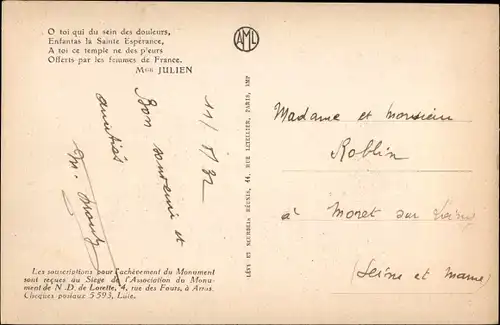 O toi qui du sein des douleurs,
Enfantas la Sainte Espérance,
A toi ce temple ne des p'eurs
Offerts par les femmes de France.
Mgr JULIEN
AML
11/8/32
Bon souvenir et
amitiés
LÉVY ET NEURDEIN RÉUNIS, 44, RUE LETELLIER, PARIS, IMP
Madame et monsieur
Roblin
à Moret sur Loing
(Seine et Marne)
Les souscriptions pour l'achèvement du Monument
sont reçues au Siège de l'Association du Monu-
ment de N. D. de Lorette, 4, rue des Fours, à Arras.
Cheques postaux 5 593, Lille.